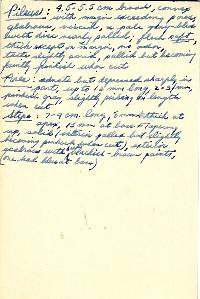 Pileus: 4.5-5.5 cm broad, convex
with margin exceeding pores,
glabrous, viscid, a pale gray-
but the disc nearly pallid; flesh soft,
thick except on margin, no odor,
taste slightly, pallid but becoming
faintly pinkish when cut
Pores: adnate but depressed sharply in
part, up to 12 mm long, 2-3/mm,
pinkish gray, slightly
when cut
Stipe: 7-9 cm long, 8 mm thick at
apex, 15 mm at base & tapering
up, solid (pallid but slightly
becoming pinkish when cut), exterior
scabrous with -brown points,
one had blue at base)